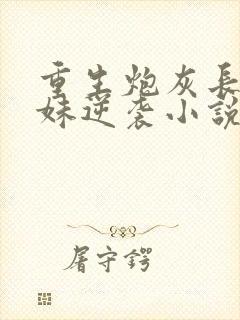 重生炮灰長
妹逆袭小說
屠守鍔